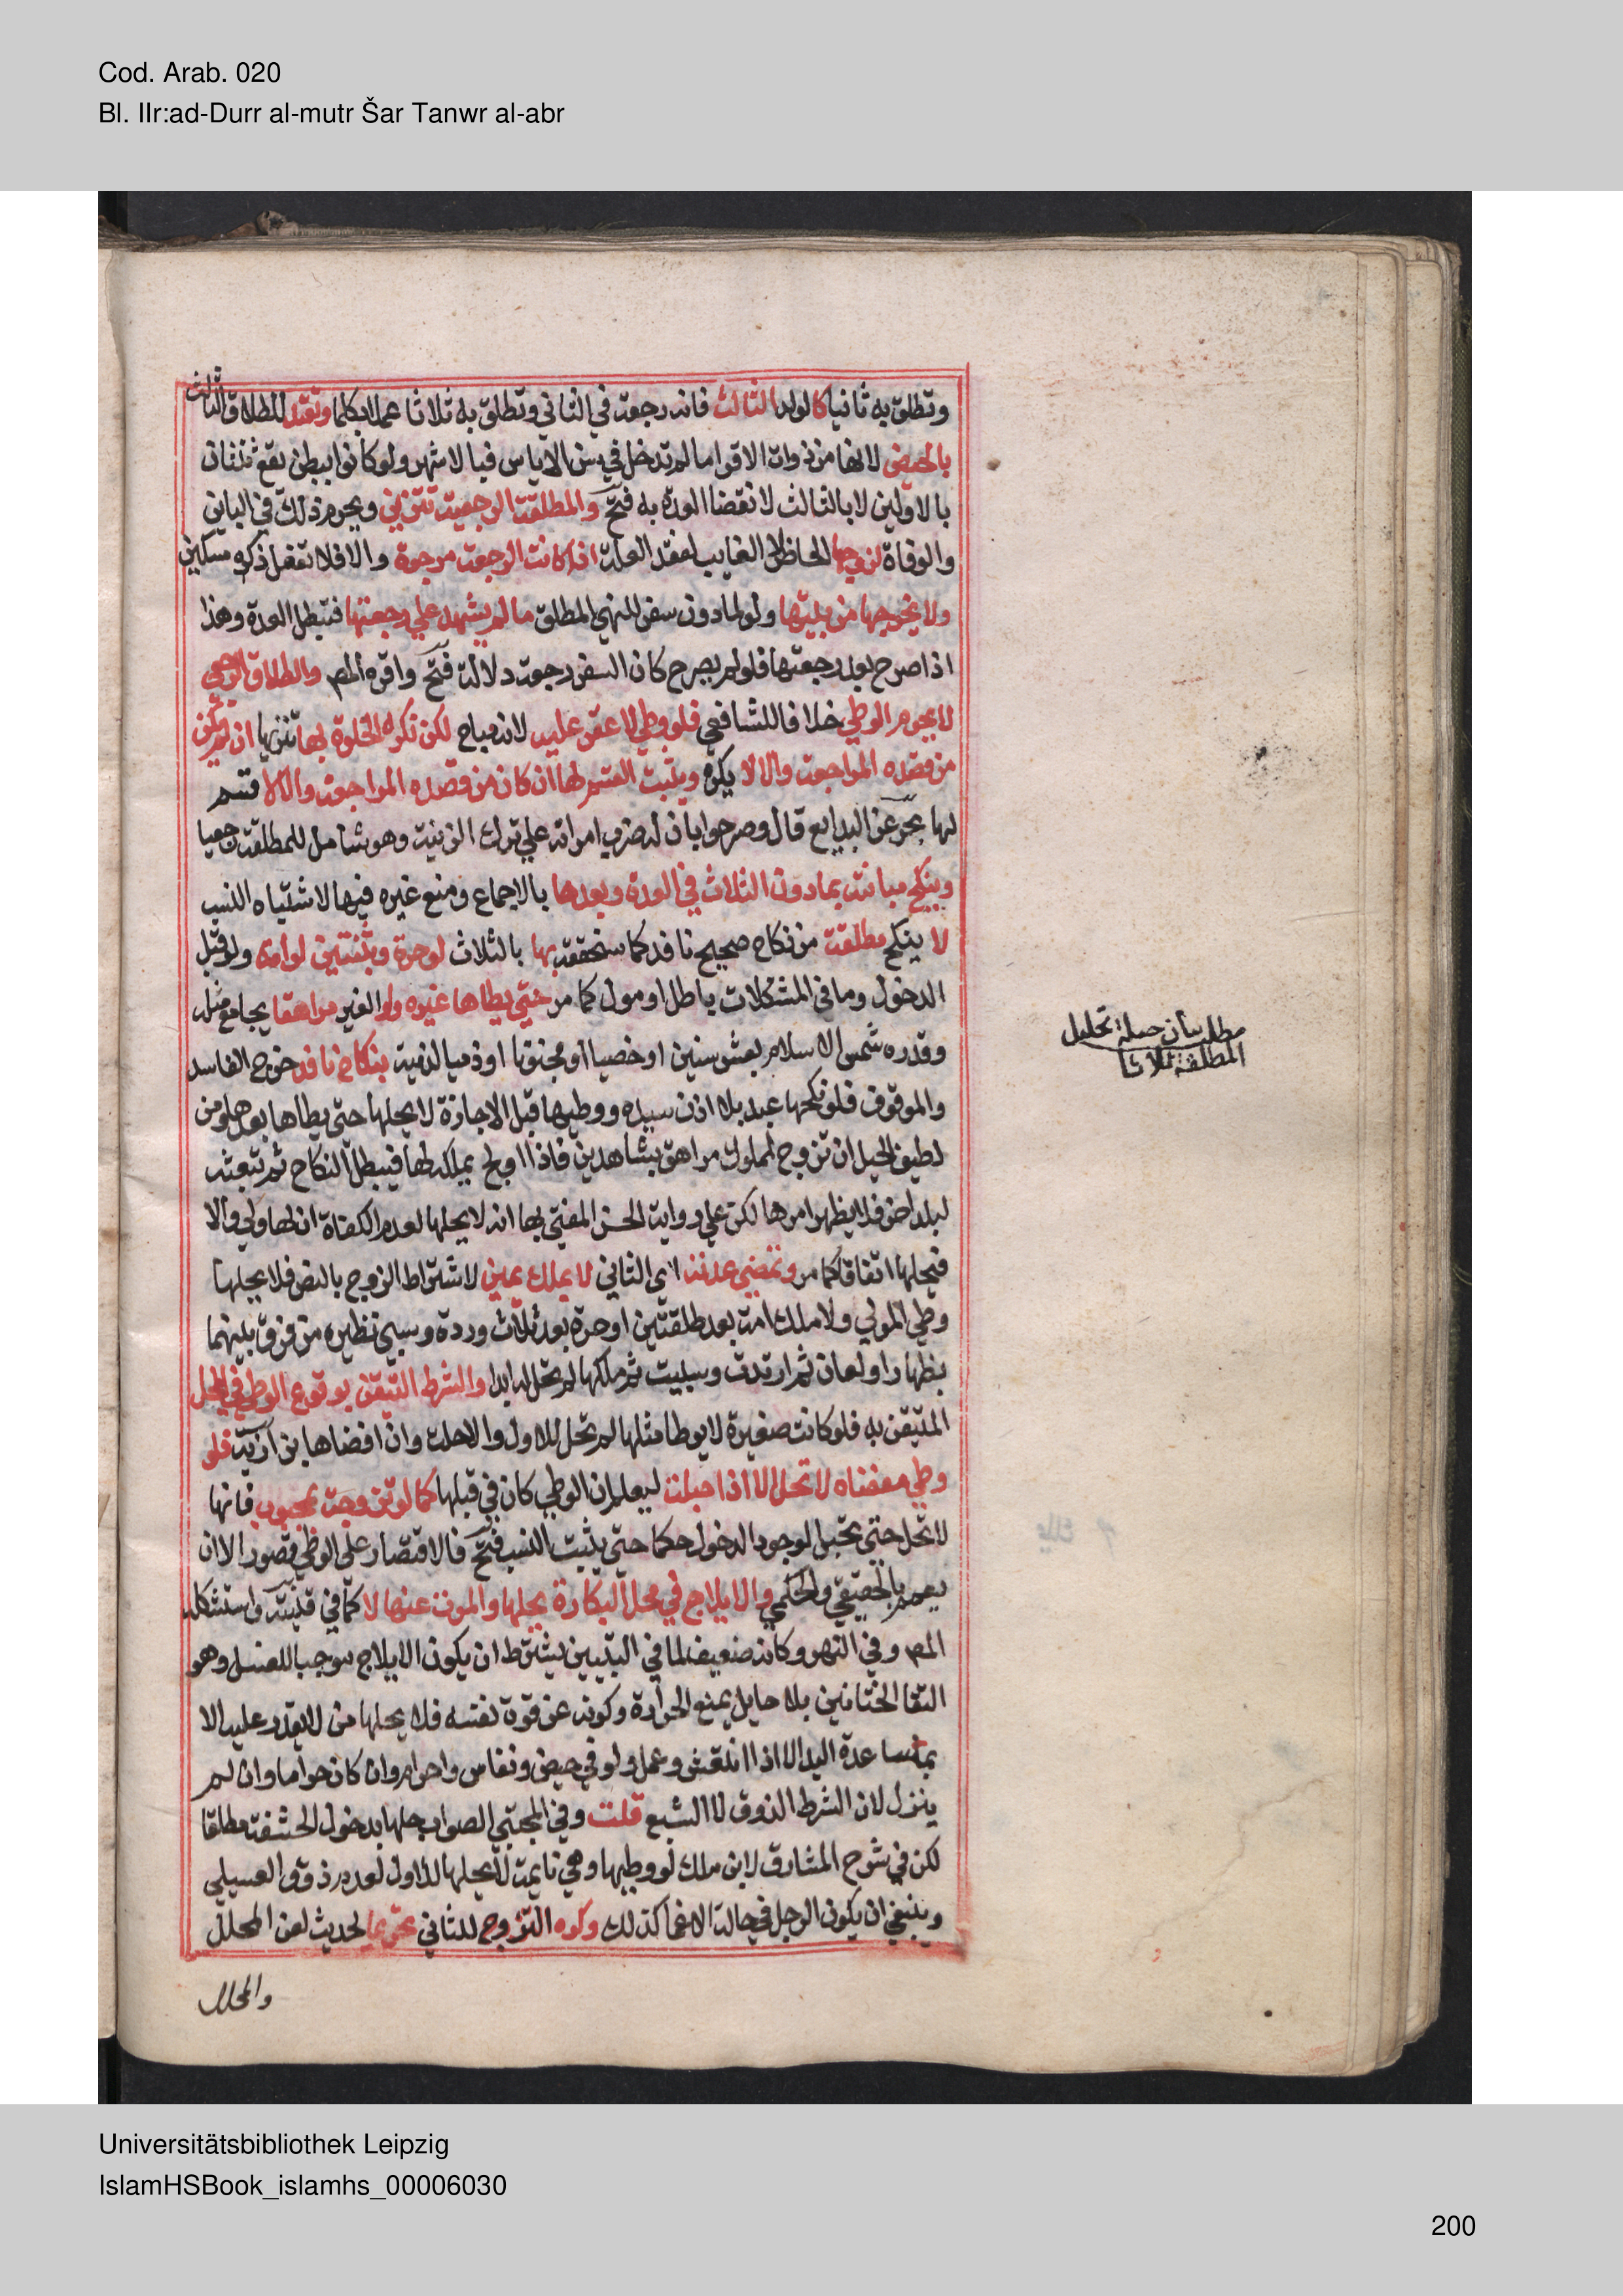 Cod. Arab. 020
Bl. IIr:ad-Durr al-mutr Šar Tanwr al-abr
وتطلق به ثانيا كالولد الثالث فانه رجعة في الثاني وتطلق به ثلاثا عملا بكلما وتعتد للطلاق الثالث
بالحيض لانها من ذوات الاقراء ما لم تدخل في سن الاياس فبالاشهر ولو كانوا ببطن يقع ثنتان
بالاولين لا بالثالث لانقضا العدة به فتح والمطلقة الرجعية تتزين ويحرم ذلك في الباين
والوفاة لزوجها الحاضر لا الغايب لفقد العلة اذا كانت الرجعة مرجوة والا فلا تفعل ذكره مسكين
ولا يخرجها من بيتها ولو لما دون سفر للنهي المطلق ما لم يشهد علي رجعتها فتبطل العدة وهذا
اذا صرح بعد رجعتها فلو لم يصرح كان السفر رجعة دلالة فتح واقره المص والطلاق الرجعي
لا يحرم الوطي خلافا للشافعي فلو وطي لا عقر عليه لانه مباح لكن تكره الخلوة بها تنزيها ان لم يكن
من قصده المراجعة والا لا يكره ويثبت القسم لها ان كان من قصده المراجعة والا لا قسم
لها بحر عن البدايع قال وصرحوا بان له ضرب امراته علي ترك الزينة وهو شامل للمطلقة رجعيا
وينكح مبانته بما دون الثلاث في العدة وبعدها بالاجماع ومنع غيره فيها لاشتباه النسب
لا ينكح مطلقة من نكاح صحيح نافذ كما سنحققه بها بالثلاث لو حرة وبثنتين لو امة ولو قبل
الدخول وما في المشكلات باطل او مول كما مر حتي يطاها غيره ولو الغير مراهقا يجامع مثله
وقدره شمس الاسلام بعشر سنين او خصيا او مجنونا او ذميا لذمية بنكاح نافذ خرج الفاسد
والموقوف فلو نكحها عبد بلا اذن سيده ووطيها قبل الاجازة لا يحلها حتى يطاها بعدها ومن
لطيف الحيل ان تزوج لمملوك مراهق بشاهدين فاذا اولج يملكه لها فيبطل النكاح ثم تبعثه
لبلد اخر فلا يظهر امرها لكن علي رواية الحسن المفتي بها انه لا يحلها لعدم الكفاة ان لها ولي والا
فيحلها اتفاقا كما مر وتمضي عدته اي الثاني لا بملك يمين لاشتراط الزوج بالنص فلا يحلها
وطي المولي ولا ملك امة بعد طلقتين او حرة بعد ثلاث وردة وسبي نظيره من فرق بينهما
بظهار او لعان ثم ارتدت وسبيت ثم ملكها لم تحل له ابدا والشرط التيقن بوقوع الوطي في المحل
المتيقن به فلو كانت صغيرة لا يوطا مثلها لم تحل للاول والا حلت وان افضاها بزازية فلو
وطي مفضاه لا تحل الا اذا حبلت ليعلم ان الوطي كان في قبلها كما لو تزوجت بمجبوب فانها
لا تحل حتى تحبل لوجود الدخول حكما حتى يثبت النسب فتح فالاقتصار على الوطي قصور الا ان
يعمم بالحقيقي والحكمي والايلاج في محل البكارة يحلها والموت عنها لا كما في قنية واستشكله
المص وفي النهر وكانه ضعيف لما في التبيين يشترط ان يكون الايلاج موجبا للغسل وهو
التقا الختانين بلا حايل يمنع الحرارة وكونه عن قوة نفسه فلا يحلها من لا يقدر عليه الا
بمساعدة اليد الا اذا انتعش وعمل ولو في حيض ونفاس واحرام وان كان حراما وان لم
ينزل لان الشرط الذوق لا الشبع قلت وفي المجتبي الصواب حلها بدخول الحشفة مطلقا
لكن في شرح المشارق لابن ملك لو وطيها وهي نايمة لا يحلها للاول لعدم ذوق العسيلي
وينبغي ان يكون الرجل في حالة الاغما كذلك وكره التزوج للثاني تحريما لحديث لعن المحلل
والمحلل
مطلب بيان حيلة تحليل
المطلقة ثلاثا
Universitätsbibliothek Leipzig
IslamHSBook_islamhs_00006030
200